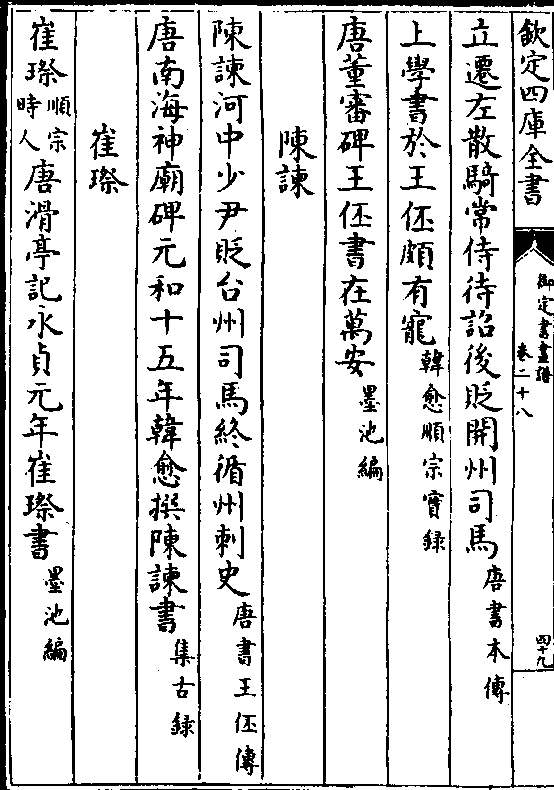 欽定四庫全書
御定書畫譜
卷二十八
四十九
立遷左散騎常侍待詔後貶開州司馬唐書本傳
上學書於王伾頗有寵韓愈順宗實録
唐董審碑王伾書在萬安墨池編
陳諫
陳諫河中少尹貶台州司馬終循州刺史唐書王伾傳
唐南海神廟碑元和十五年韓愈撰陳諫書集古録
崔璨
崔璨順宗時人唐滑亭記永貞元年崔璨書墨池編